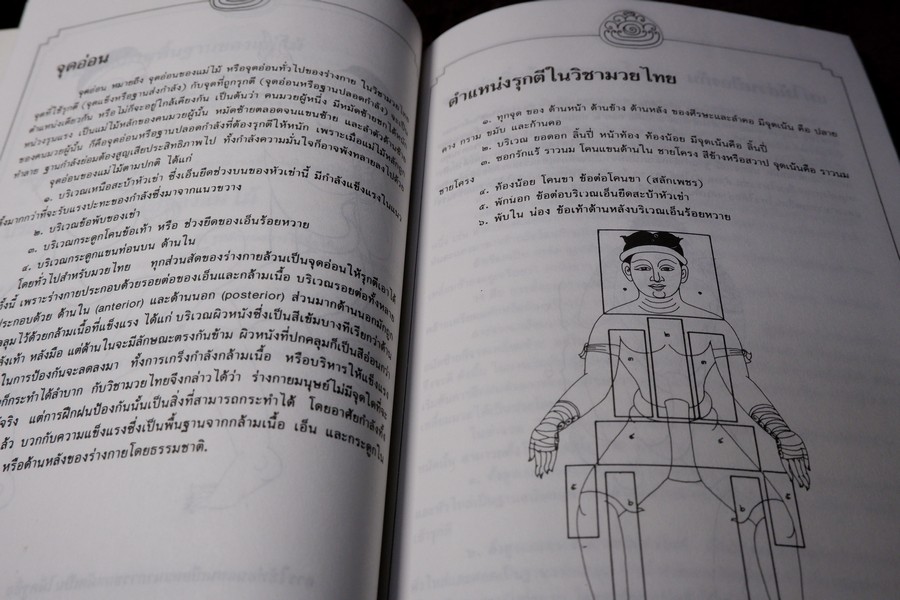 จุดอ่อน
จุดอ่อน หมายถึง จุดอ่อนของแม่ไม้ หรือจุดอ่อนทั่วไปของร่างกาย ในวิชามวยไทย
จุดที่ใช้รุกตี (จุดแข็งหรือฐานส่งกำลัง) กับจุดที่ถูกรุกตี (จุดอ่อนหรือฐานปลอดกำลัง)
ตำแหน่งเดียวกัน หรือไม่ก็จะอยู่ใกล้เคียงกัน เป็นต้นว่า คนมวยผู้หนึ่ง มีหมัดซ้ายชกได้
หน่วงรุนแรง เป็นแม่ไม้หลักของคนมวยผู้นั้น หมัดซ้ายตลอดจนแขนซ้าย และลำตัวด้านซ้าย
ของคนมวยผู้นั้น ก็คือจุดอ่อนหรือฐานปลอดกำลังที่ต้องรุกตีให้หนัก เพราะเมื่อแม่ไม้หลักถูก
ทำลาย ฐานกำลังย่อมต้องสูญเสียประสิทธิภาพไป ทั้งกำลังความมั่นใจก็อาจพังทลายลงไปด้วย
จุดอ่อนของแม่ไม้ตามปกติ ได้แก่
๑. บริเวณเหนือสะบ้าหัวเข่า ซึ่งเอ็นยึดช่วงบนของหัวเข่านี้ มีกำลังแข็งแรงในแนว
ตั้งมากกว่าที่จะรับแรงปะทะของกำลังซึ่งมาจากแนวขวาง
๒. บริเวณข้อพับของเข่า
๓. บริเวณกระดูกโคนข้อเท้า หรือ ช่วงยึดของเอ็นร้อยหวาย
๔. บริเวณกระดูกแขนท่อนบน ด้านใน
โดยทั่วไปสำหรับมวยไทย ทุกส่วนสัดของร่างกายล้วนเป็นจุดอ่อนให้รุกตีเอาได้
ทั้งนี้ เพราะร่างกายประกอบด้วยรอยต่อของเอ็นและกล้ามเนื้อ บริเวณรอยต่อทั้งหลาย
ประกอบด้วย ด้านใน (anterior) และด้านนอก (posterior) ส่วนมากด้านนอกมักถูก
คลุมไว้ด้วยกล้ามเนื้อที่แข็งแรง ได้แก่ บริเวณผิวหนังซึ่งเป็นสีเข้มบางทีเรียกว่าด้าน
หลังเท้า หลังมือ แต่ด้านในจะมีลักษณะตรงกันข้าม ผิวหนังที่ปกคลุมก็เป็นสีอ่อนกว่า
ในการป้องกันจะลดลงมา ทั้งการเกร็งกำลังกล้ามเนื้อ หรือบริหารให้แข็งแรง
ก็กระทำได้ลำบาก กับวิชามวยไทยจึงกล่าวได้ว่า ร่างกายมนุษย์ไม่มีจุดใดที่จะ
จริง แต่การฝึกฝนป้องกันนั้นเป็นสิ่งที่สามารถกระทำได้ โดยอาศัยกำลังทั้ง
แล้ว บวกกับความแข็งแรงซึ่งเป็นพื้นฐานจากกล้ามเนื้อ เอ็น และกระดูกใน
หรือด้านหลังของร่างกายโดยธรรมชาติ.
ตำแหน่งรุกตีในวิชามวยไทย
๑. ทุกจุด ของ ด้านหน้า ด้านข้าง ด้านหลัง ของศีรษะและลำคอ มีจุดเน้น คือ ปลาย
คาง กราม ขมับ และก้านคอ
๒. บริเวณ ยอดอก ลิ้นปี่ หน้าท้อง ท้องน้อย มีจุดเน้นคือ ลิ้นปี่
๓. ซอกรักแร้ ราวนม โคนแขนด้านใน ชายโครง สีข้างหรือสวาป จุดเน้นคือ ราวนม
ชายโครง
๔. ท้องน้อย โคนขา ข้อต่อโคนขา (สลักเพชร)
๕. พักนอก ข้อต่อบริเวณเอ็นยึดสะบ้าหัวเข่า
๖. พับใน น่อง ข้อเท้าด้านหลังบริเวณเอ็นร้อยหวาย
๑
๒
๓
๓
๔
๔
๕
๖
๖
๕